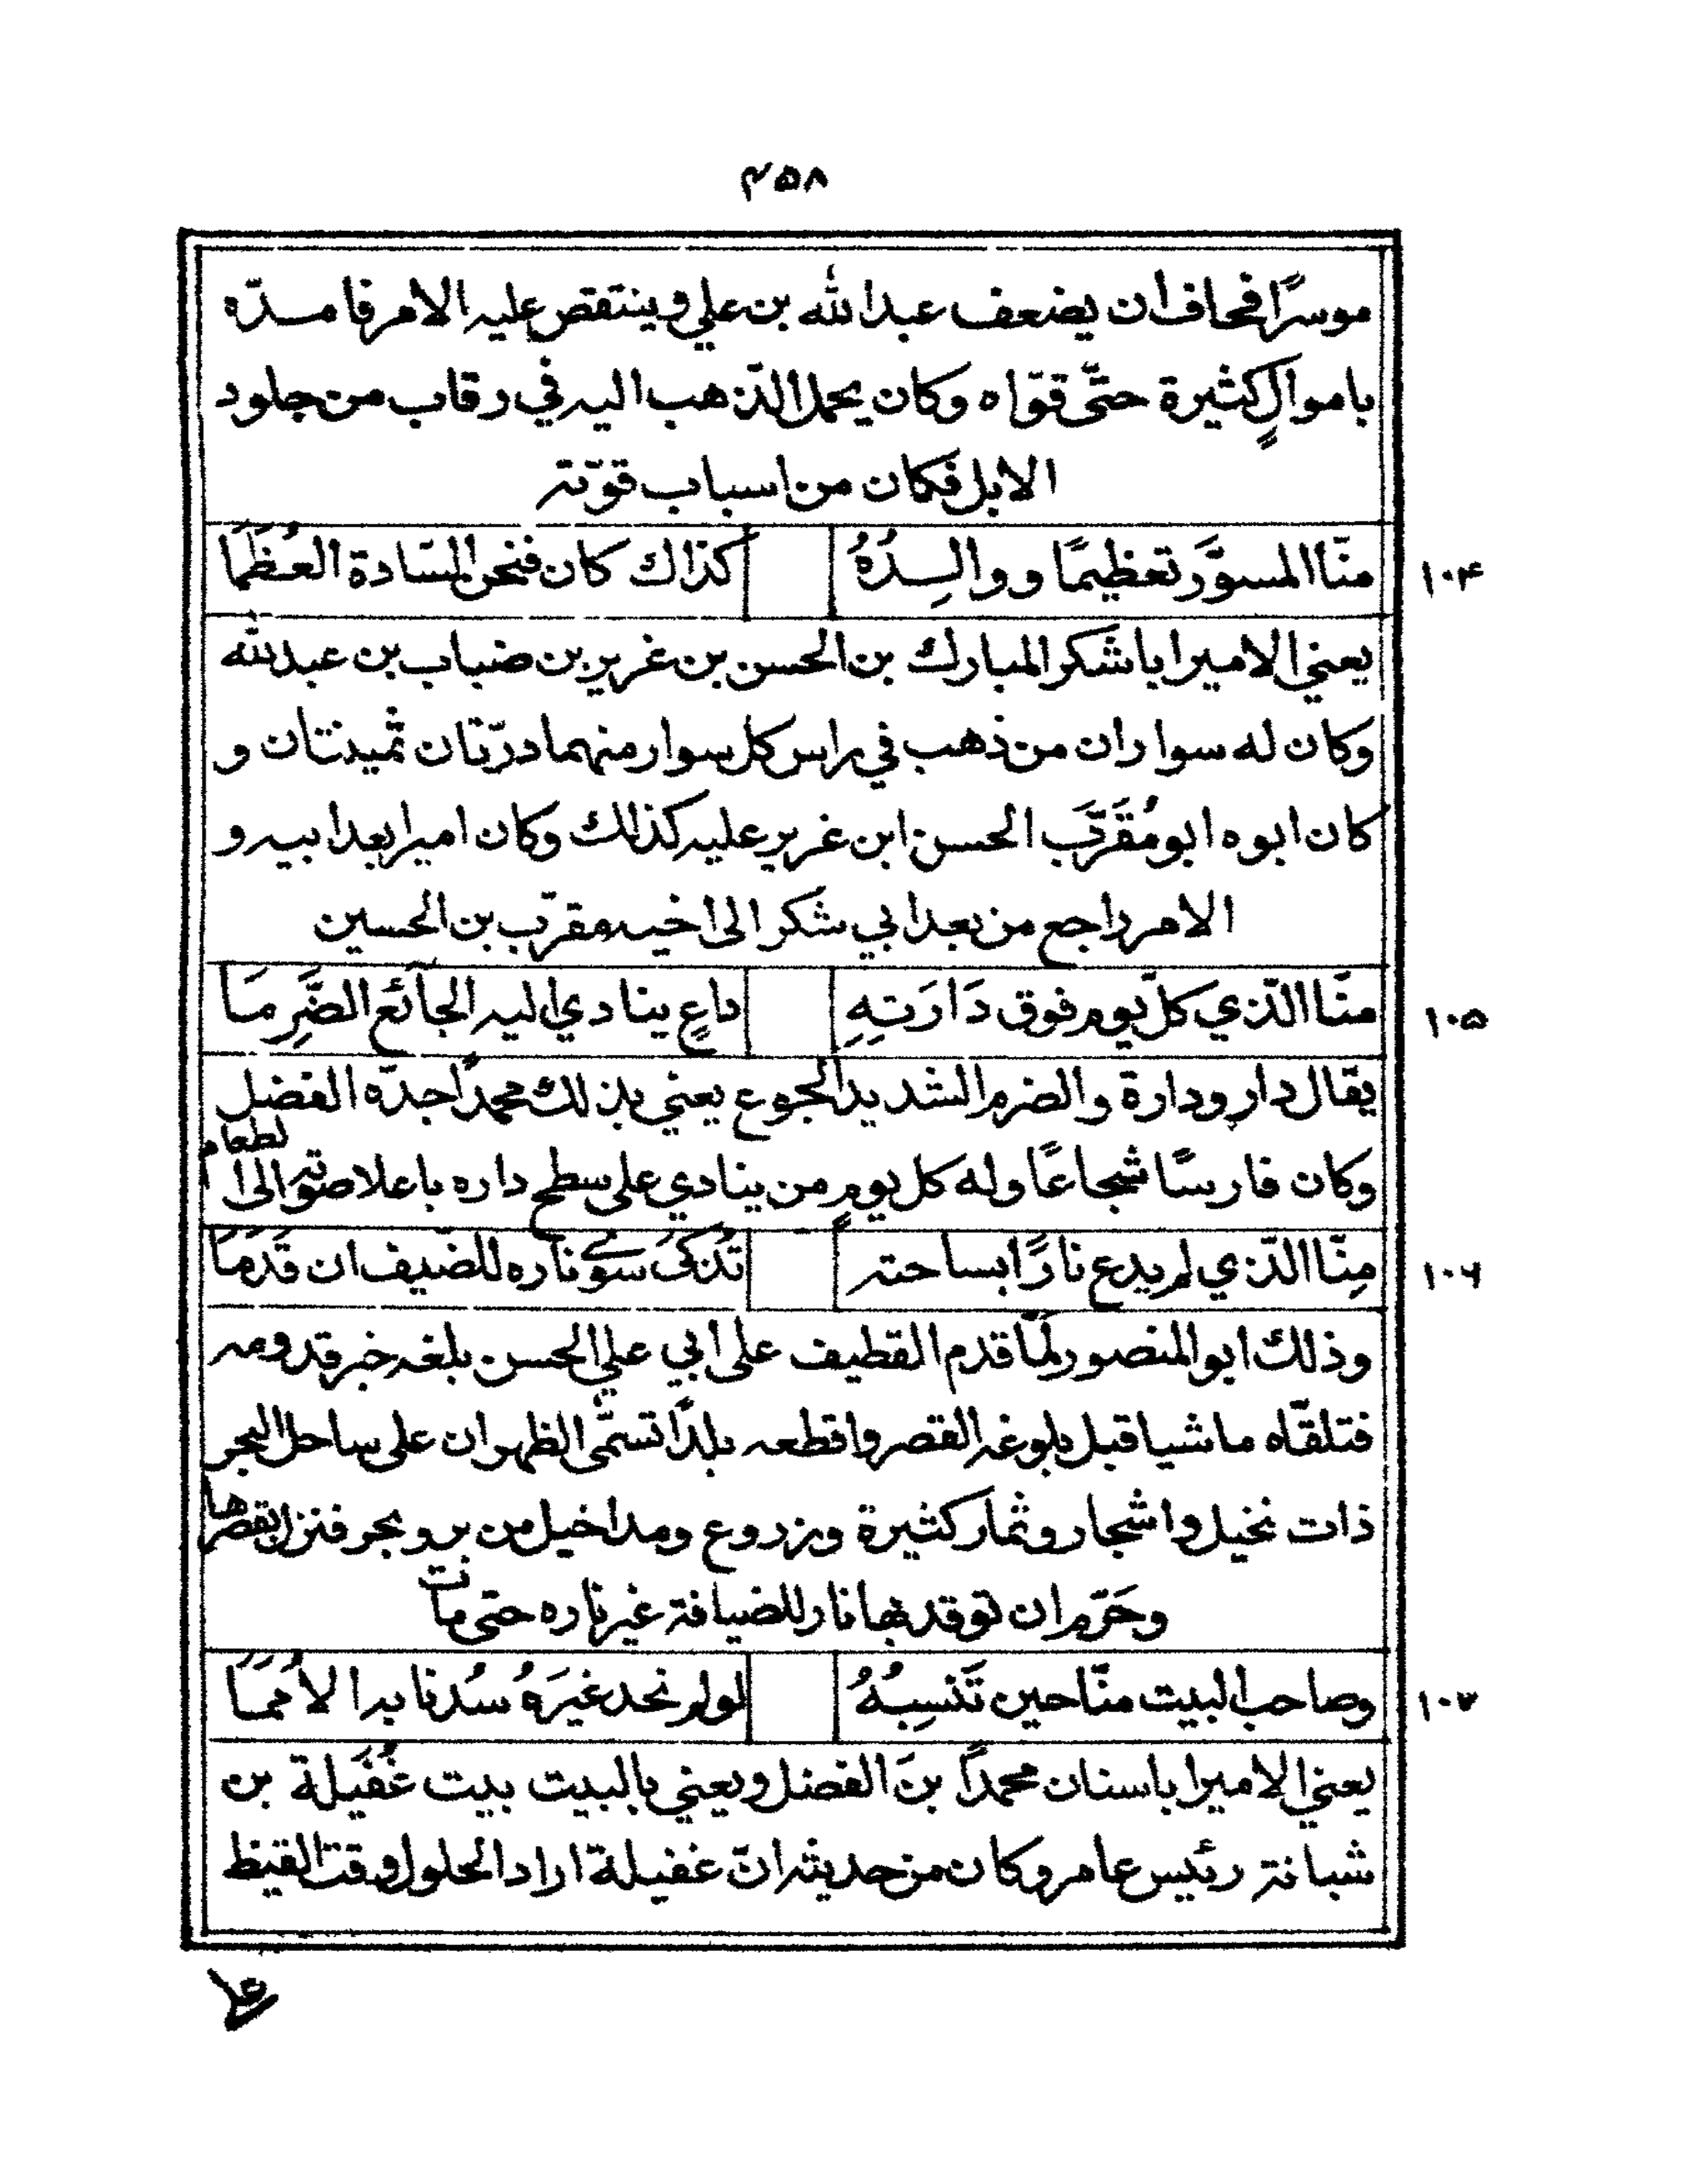 ۴۵۸
موسرًا فخاف ان يضعف عبدالله بن علي وينتقص عليه الامر فامدّه
باموالٍ كثيرة حتّى قوّاه وكان يحمل الذّهب اليه في رقاب من جلود
الابل فكان من اسباب قوّته
۱۰۴ منّا المسوَّر تعظيمًا ووالِدُهُ كذاك كان فنحن السّادة العُظَمَا
يعني الامير اباشكر المبارك بن الحسن بن غرير بن ضباب بن عبدالله
وكان له سواران من ذهب في راس كل سوار منهما درّتان ثمينتان و
كان ابوه ابومُقَرَّب الحسن ابن غرير عليه كذلك وكان اميرا بعد ابيه و
الامر راجع من بعد ابي شكر الى اخيه مقرّب بن الحسين
۱۰۵ منّا الّذي كلّ يوم فوق دَارَتِهِ داعٍ ينادي اليه الجآئع الضَّرِمَا
يقال دار ودارة والضرم الشديد الجوع يعني بذلك محمدًا جدّه الفضل
وكان فارسًا شجاعًا وله كل يومٍ من ينادي على سطح داره باعلا صوته الى الطعام
۱۰۶ مِنّا الّذي لم يدع نارًا بساحته تُذكىَ سوى ناره للضّيف ان قَدَمَا
وذلك ابوالمنصور لمّا قدم القطيف على ابي علي الحسن بلغه خبر قدومه
فتلقّاه ماشيا قبل بلوغه القصر واقطعه بلدًا تسمّى الظهران على ساحل البحر
ذات نخيل واشجار وثمار كثيرة وزروع ومداخيل من بر وبحر فنزل بقصرها
وحَرّم ان توقد بها نار للضيافة غير ناره حتى مات
۱۰۷ وصاحب البيت منّا حين تَنسِبُهُ لو لم نجد غيرَهُ سُدنا به الأممَا
يعني الامير اباسنان محمدًا بنَ الفضل ويعني بالبيت بيت غُفَيلة بن
شبانة رئيس عامر وكان من حديثه انّ غفيلة اراد الحلول وقت القيظ